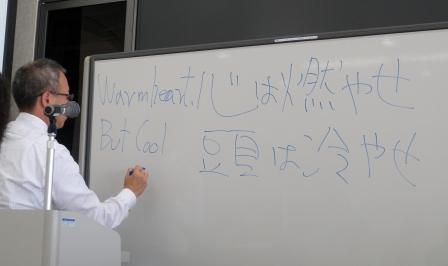 Warmheart. 心は燃やせ
But Cool 頭は冷やせ